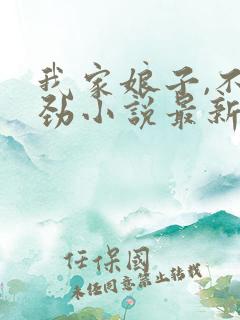 我家娘子,不
劲小说最新
任保国
未经同意禁止转载